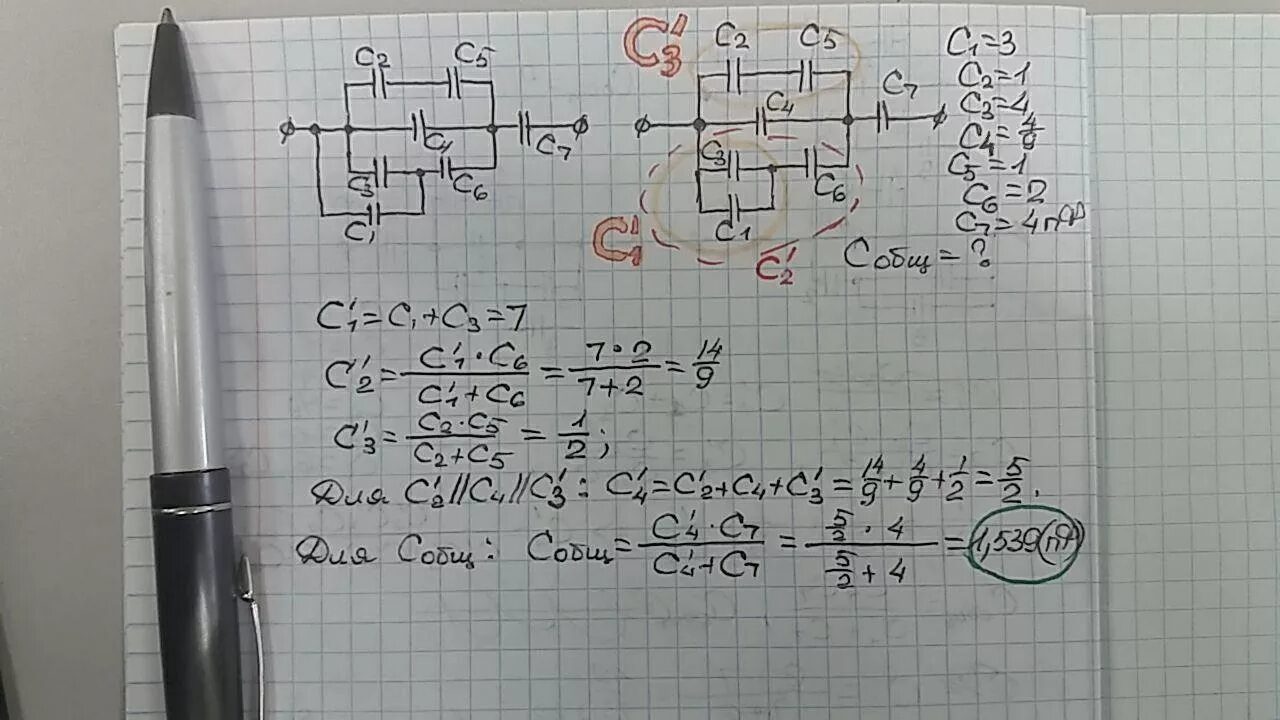 C2 C5
C4 C7
C3 C6
C1
C'3 C2 C5
C4 C7
C3 C6
C'1 C1 C'2
C1=3
C2=1
C3=4
C4=4/9
C5=1
C6=2
C7=4пФ
Cобщ=?
C'1=C1+C3=7
C'2=(C'1·C6)/(C'1+C6)=(7·2)/(7+2)=14/9
C'3=(C2·C5)/(C2+C5)=1/2;
Для C'2//C4//C'3: C'4=C'2+C4+C'3=14/9+4/9+1/2=5/2.
Для Cобщ: Cобщ=(C'4·C7)/(C'4+C7)=(5/2·4)/(5/2+4)=1,539(пФ)